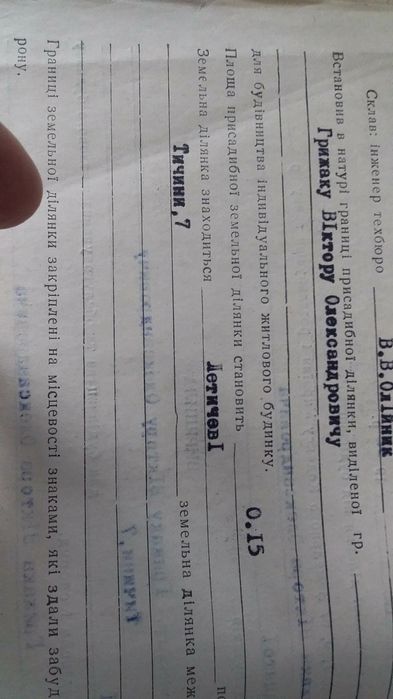 Склав: інженер техбюро В.В.Олійник
Встановив в натурі границі присадибної ділянки, виділеної гр.
Грижаку Віктору Олександровичу
для будівництва індивідуального житлового будинку.
Площа присадибної земельної ділянки становить 0.15
Земельна ділянка знаходиться Летичеві
Тичини,7 земельна ділянка меж
Границі земельної ділянки закріплені на місцевості знаками, які здали забуд
рону.